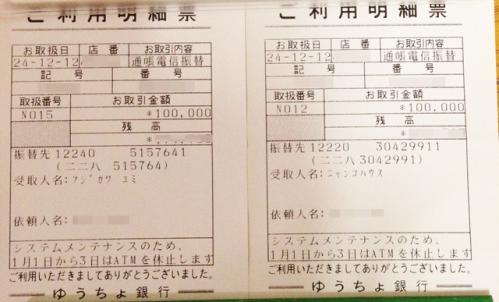 ご利用明細票
お取扱日 店番 お取引内容
24-12-12 通帳電信振替
記号 番号
取扱番号 お取引金額
N015 *100,000
残高
*
振替先12240 5157641
(二二八 515764)
受取人名:フジガワ ユミ
依頼人名:
システムメンテナンスのため、
1月1日から3日はATMを休止します
ご利用いただきましてありがとうございました。
ゆうちょ銀行
ご利用明細票
お取扱日 店番 お取引内容
24-12-12 通帳電信振替
記号 番号
取扱番号 お取引金額
N012 *100,000
残高
*
振替先12220 30429911
(二二八 3042991)
受取人名:ニャンコハウス
依頼人名:
システムメンテナンスのため、
1月1日から3日はATMを休止します
ご利用いただきましてありがとうございました。
ゆうちょ銀行